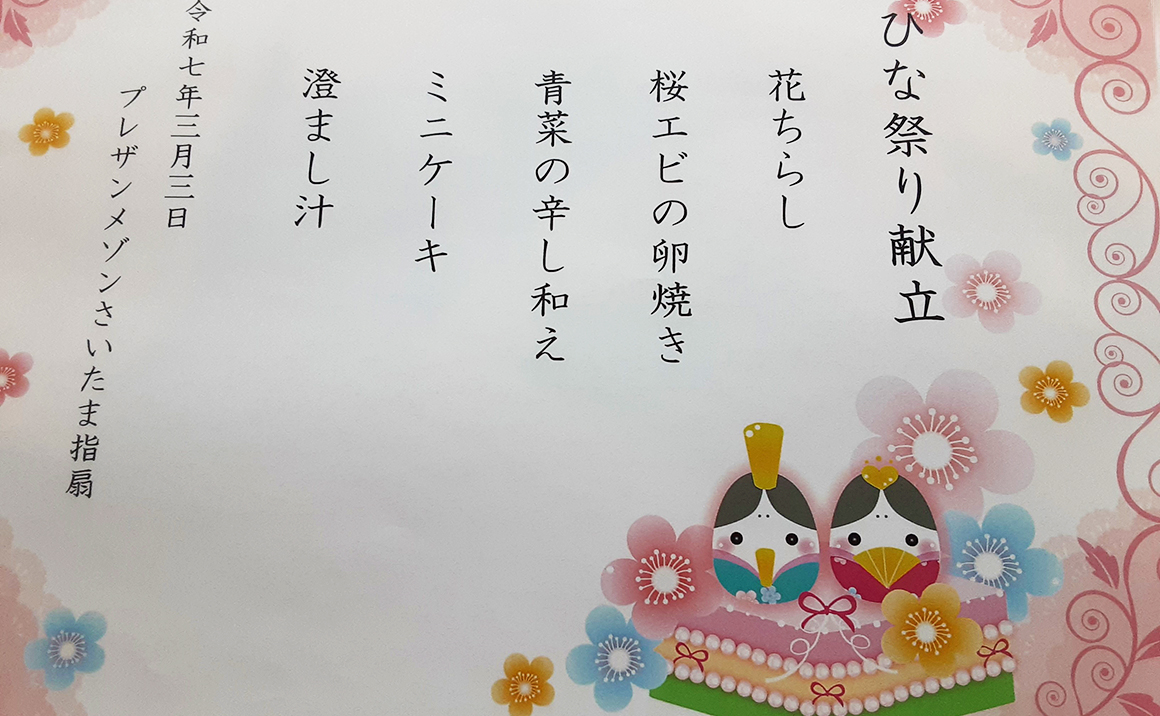 ひな祭り献立
花ちらし
桜エビの卵焼き
青菜の辛し和え
ミニケーキ
澄まし汁
令和七年三月三日
プレザンメゾンさいたま指扇